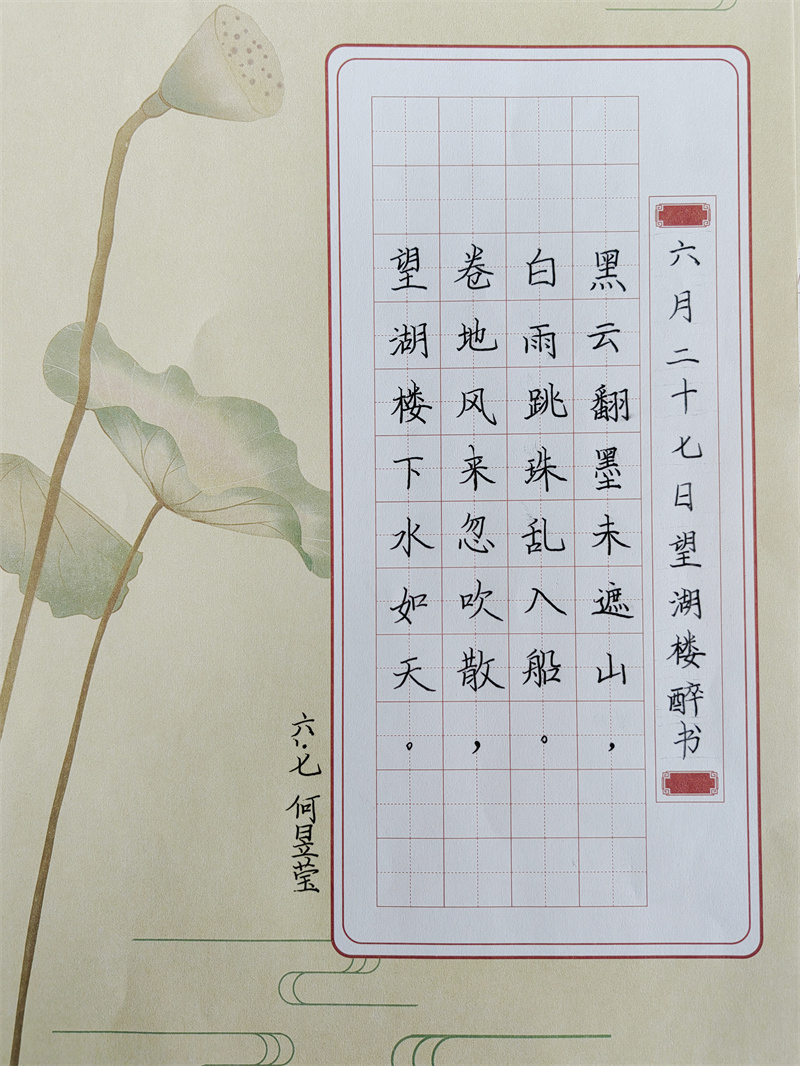 六月二十七日望湖楼醉书
黑云翻墨未遮山，
白雨跳珠乱入船。
卷地风来忽吹散，
望湖楼下水如天。
六.七 何昱莹